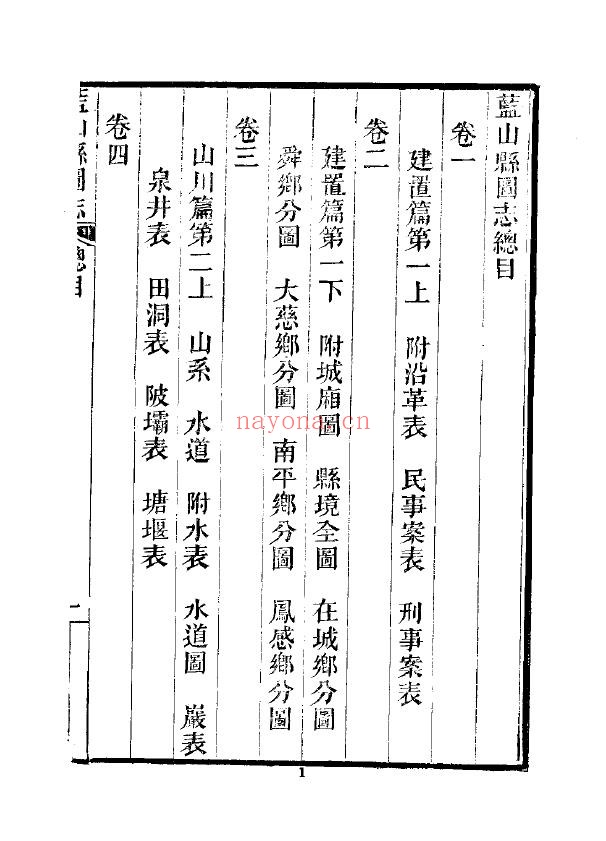 藍山縣圖志總目
卷一
建置篇第一上 附沿革表 民事案表 刑事案表
卷二
建置篇第一下 附城廂圖 縣境全圖 在城鄉分圖
舜鄉分圖 大慈鄉分圖 南平鄉分圖 鳳感鄉分圖
卷三
山川篇第二上 山系 水道 附水表 水道圖 巖表
泉井表 田洞表 陂壩表 塘堰表
卷四
藍山縣圖志 總目
一
1
nayona.cn